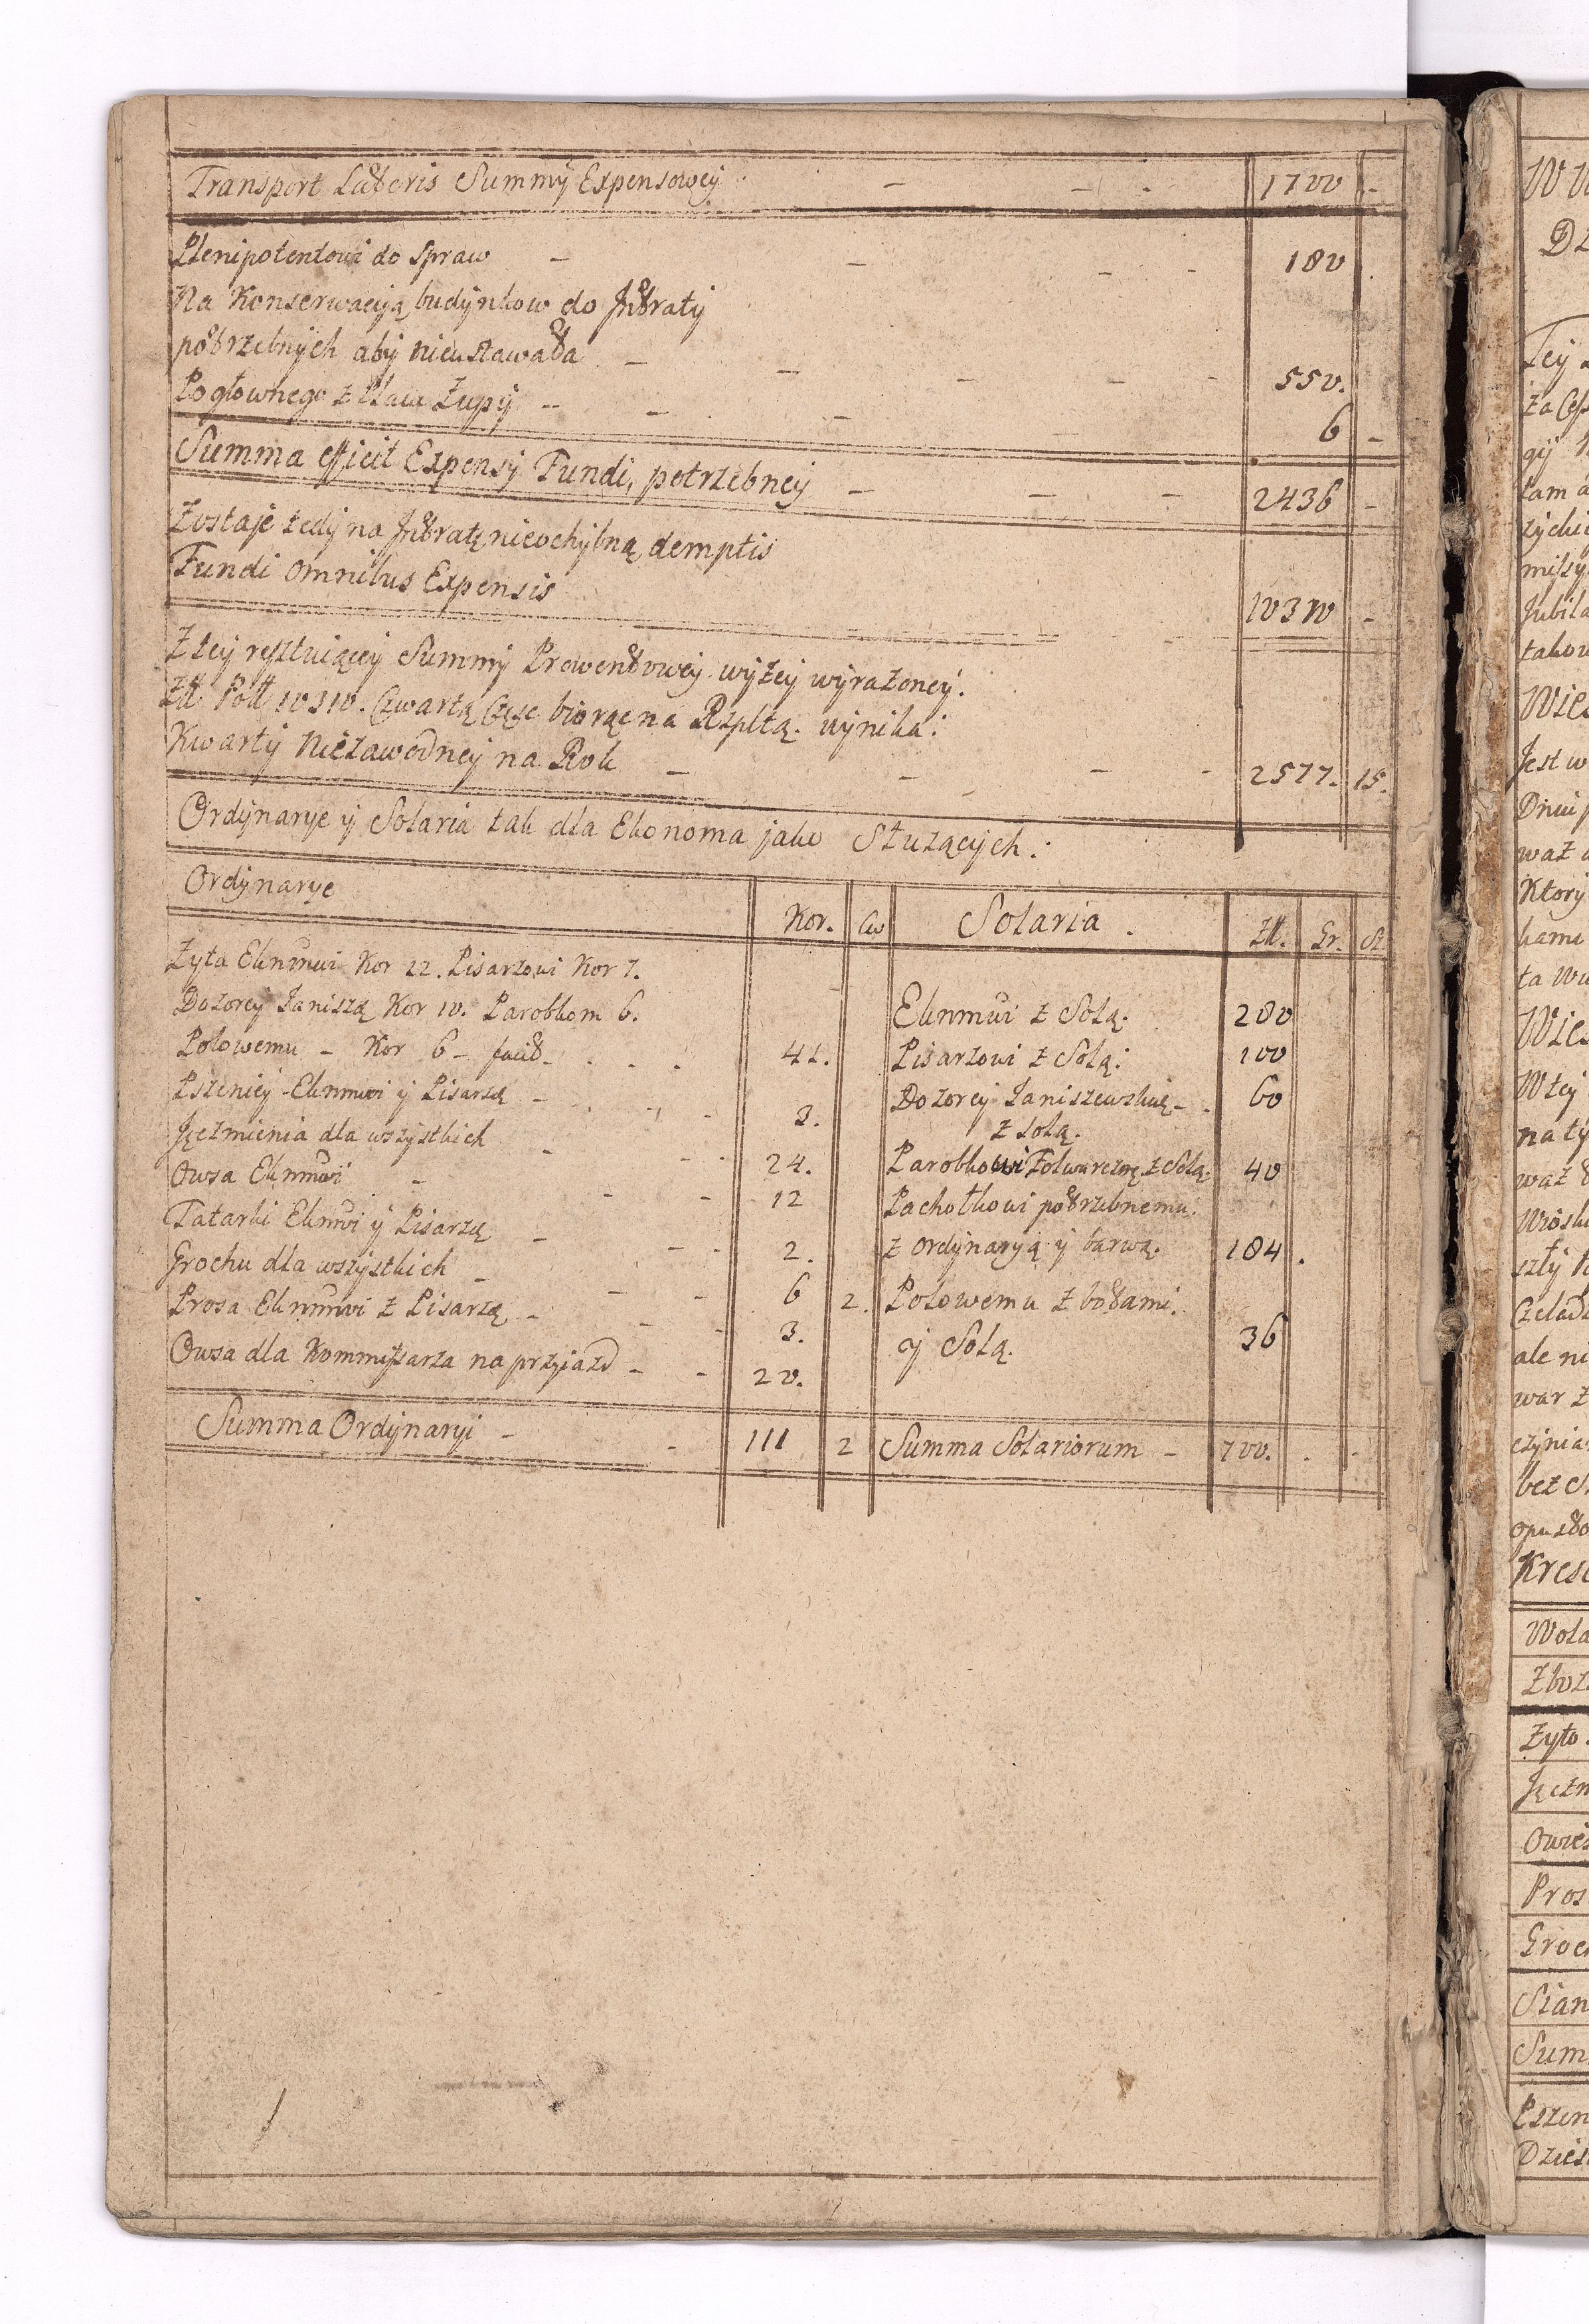 Transport Lateris Summy Expensowey - - - 1700 -
Plenipotentowi do Spraw - - - - 180
Na Konserwacyią budynkow do Intraty
potrzebnych aby nieustawała - - - - - 550.
Pogłownego z Plac Żupy - - - 6 -
Summa efficit Expensy Fundi, potrzebney - - - 2436 -
Zostaje tedy na Intratę nieochybną, demptis
Fundi omnibus Expensis 10310 -
Z tey resztuiącey Summy Prowentowey wyżey wyrażoney.
Złł Poll 10310. Czwartą Częsc biorąc na Rzpltą. wynika:
Kwarty Niezawodney na Rok - - - - 2577. 15.
Ordynarye y Solaria tak dla Ekonoma jako Służących:
Ordynarye Kor. Cw Solaria. Złł. Gr. Sz
Zyta Eknmwi Kor 22. Pisarzowi Kor 7.
Dozorcy Janiszą Kor 10. Parobkom 6. Eknmwi z Solą. 280
Polowemu - Kor 6 - facit - 41. Pisarzowi z Solą: 100
Pszenicy - Eknmwi y Pisarzą - 3. Dozorcy Janiszewskię - 60
z solą.
Jęczmienia dla wszystkich - 24. Parobkowi Folwarcznę z Solą. 40
Owsa Eknmwi - 12 Pachołkowi potrzebnemu.
Tatarki Eknwi y Pisarzą - 2. z ordynaryą y barwą. 184.
Grochu dla wszystkich - 6 2. Polowemu z botami.
Prosa Eknmwi z Pisarzą - 3. y Solą. 36
Owsa dla Kommissarza na przyiazd - 20.
Summa Ordynaryi - - 111 2 Summa Solariorum - 700.
W
Dz
Tey
za
gy
tam a
życki
missy
Jubila
takow
Wies
Jest w
Dniu p
waż
Ktory
kami
ta Wu
Wies
W tey
na ty
waż
Wiosk
szły
Czelad
ale ni
war z
czynia
bez S
opusto
Kresc
Wola
Zboz
Zyto.
Jęczm
Owies
Pros
Groc
Sian
Sum
Pszen
Dzies